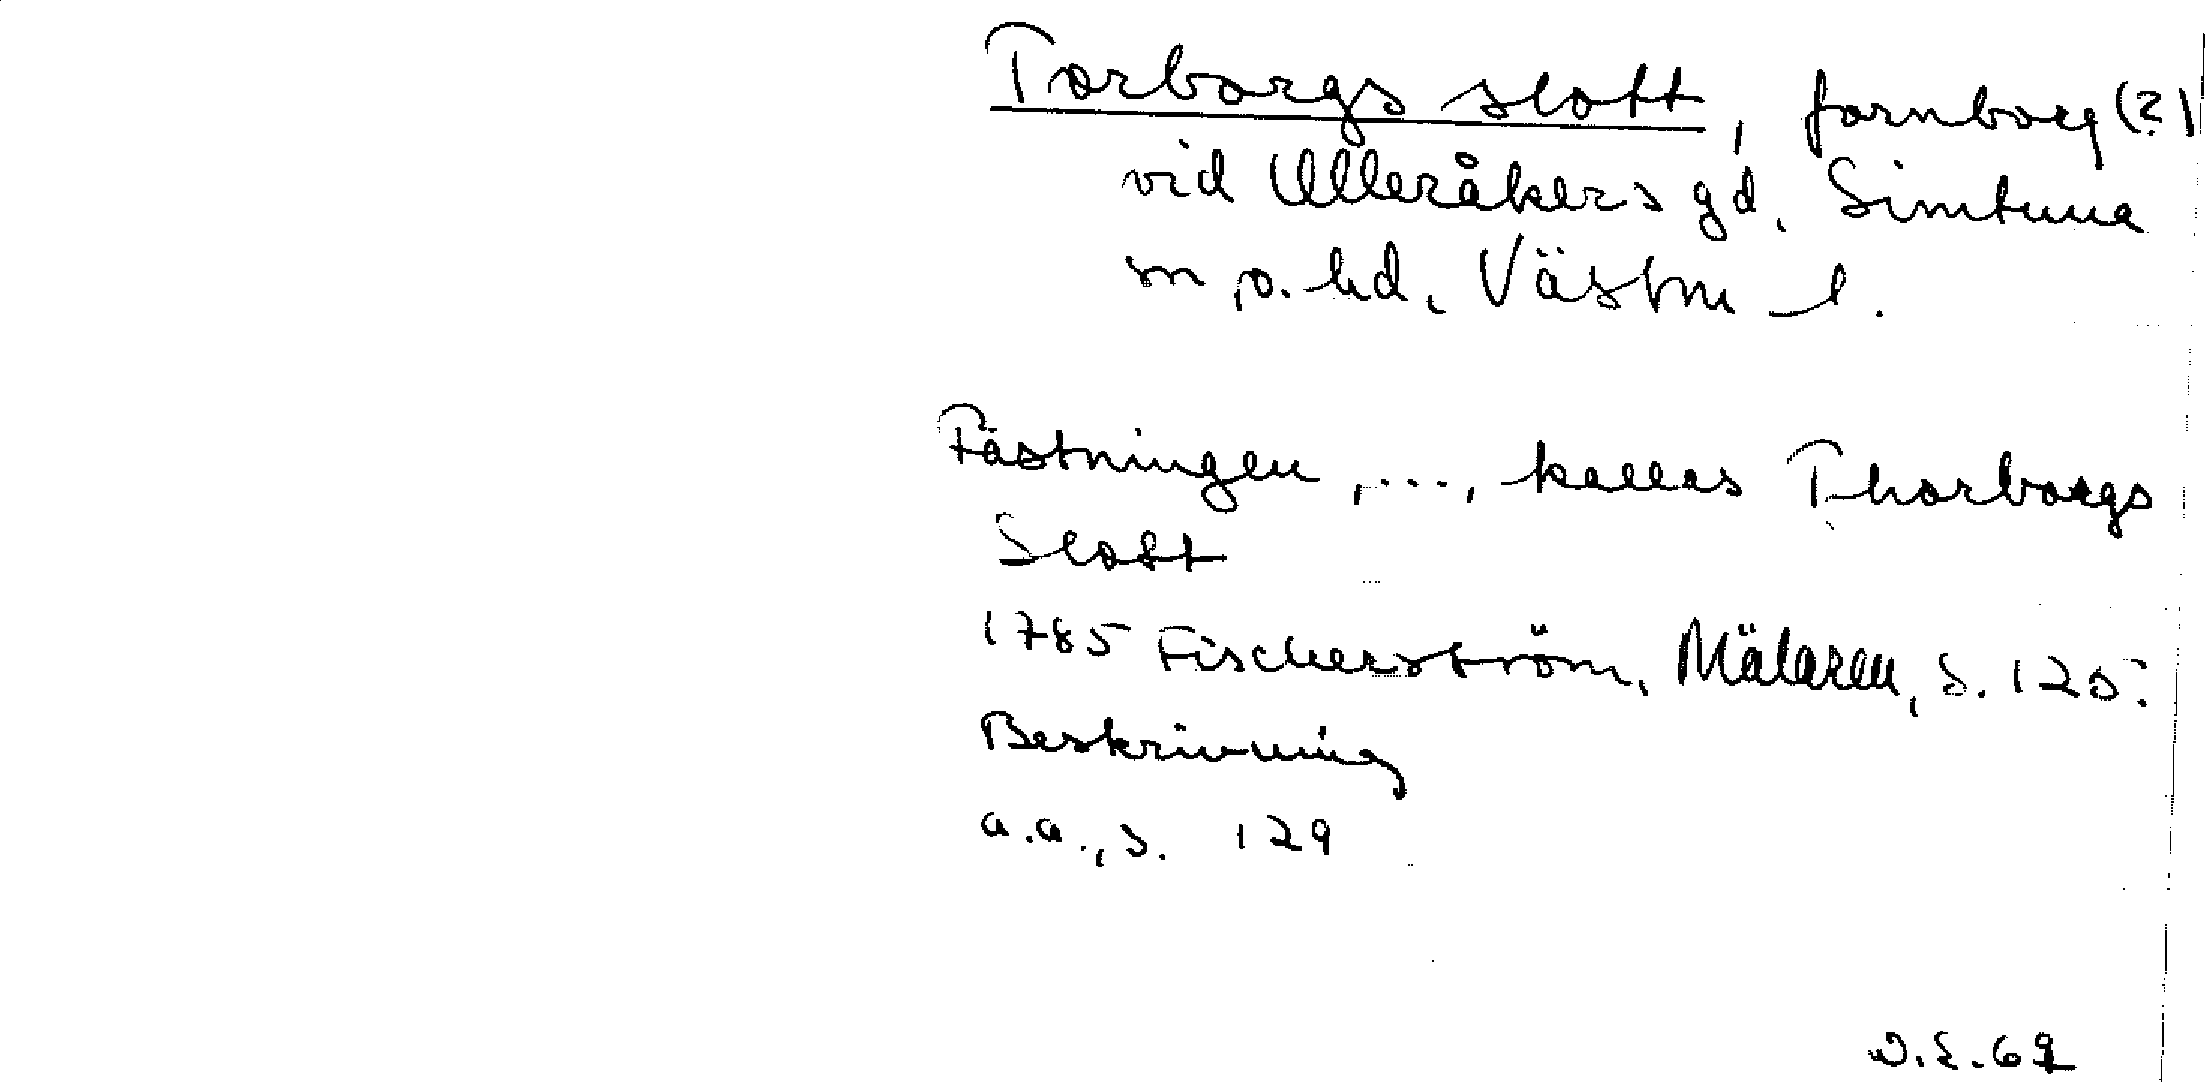 Torborgs slott, fornborg (?)
vid Ulleråkers gd, Simtuna
sn o. hd, Västm l.
Fästningen, ..., kallas Thorborgs
Slott
1785 Fischerström, Mälaren, s. 125.
Beskrivning
a.a., s. 129